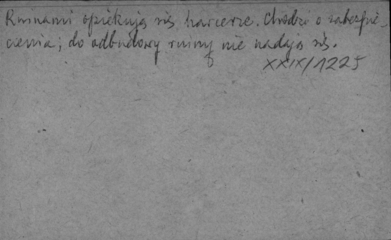 Ruinami opiekują się harcerze. Chodzi o zabezpie
czenia; do odbudowy ruiny nie nadają się.
XXIX/1225